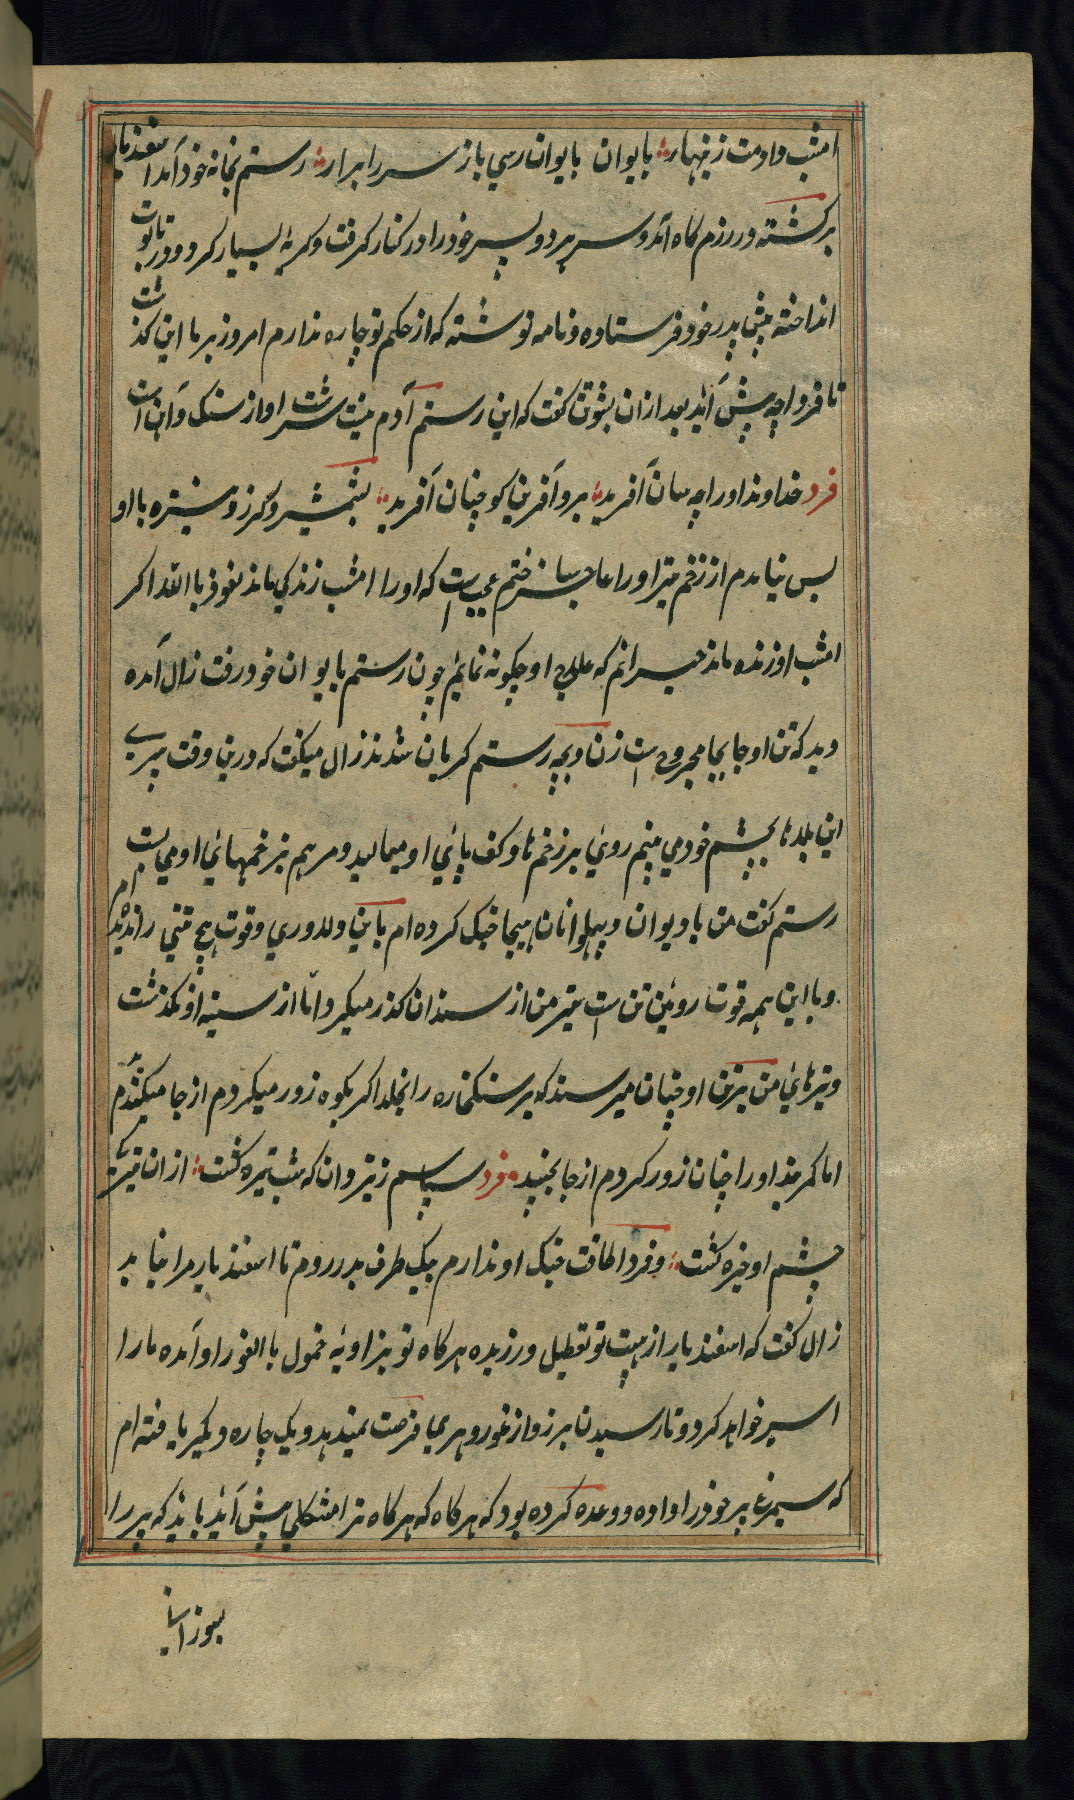 امشب دادمت زینهار بایوان بایوان رسی باز سر را برار رستم بخانه خود آمد اسفندیار
برگشته در رزم گاه آمد و سر هر دو پسر خود را در کنار گرفت و گریهٔ بسیار کرد و در تابوت
انداخته پیش پدر خود فرستاده و نامه نوشته که از حکم تو چاره ندارم امروز بر ما این گذشت
تا فردا چه پیش آید بعد ازان بشوتن گفت که این رستم آدم نیست سرشت او از سنک و آهن است
فرد خداوند او را چه سان آفرید برو آفرین کو چنان آفرید بشمشیر و گرز و نیزه با او
بس نیامدم از زخم تیر او را عاجز ساختم عجبست که او را امشب زندگی ماند نعوذ باالله اکر
امشب او زنده ماند حیرانم که علاج او چگونه نمایم چون رستم بایوان خود رفت زال آمده
دید که تن او جا بجا مجروح است زن و بچه رستم گریان شدند زال میگفت که درین وقت پیری
این بلاها بچشم خود می بینم روی بر زخم ها و کف پائی او میمالید و مرهم بزخمهائی او می بست
رستم گفت من با دیوان و پهلوانان هیجا جنگ کرده ام باین دلاوری و قوت هیچ تنی را ندیده ام
و با این همه قوت روئین تن است تیر من از سندان گذر میکرد امّا از سینه او نگذشت
و تیرهائی من بر تن او چنان میرسند که بر سنگخاره را نخلد اگر بکوه زور میکردم از جا میکندم
اما کمر بند او را چنان زور کردم از جا نجنبید فرد سپاسم ز یزدان که شب تیره گشت ازان تیرگی
چشم او خیره گشت و فردا طاقت جنگ او ندارم بیک طرف بدر روم تا اسفندیار مرا نیابد
زال گفت که اسفندیار از هیبت تو تعطیل ورزیده هر گاه تو بزاویهٔ خمول باالفور او آمده ما را
اسیر خواهد کرد و تا رسیدن برزو از غور و هری ما فرصت نمیدهد و یک چاره دیگر یافته ام
که سیمرغ پر خود را داده و وعده کرده بود که هر گاه که هر گاه ترا مشکلی پیش آید باید که پر را
بسوزانی